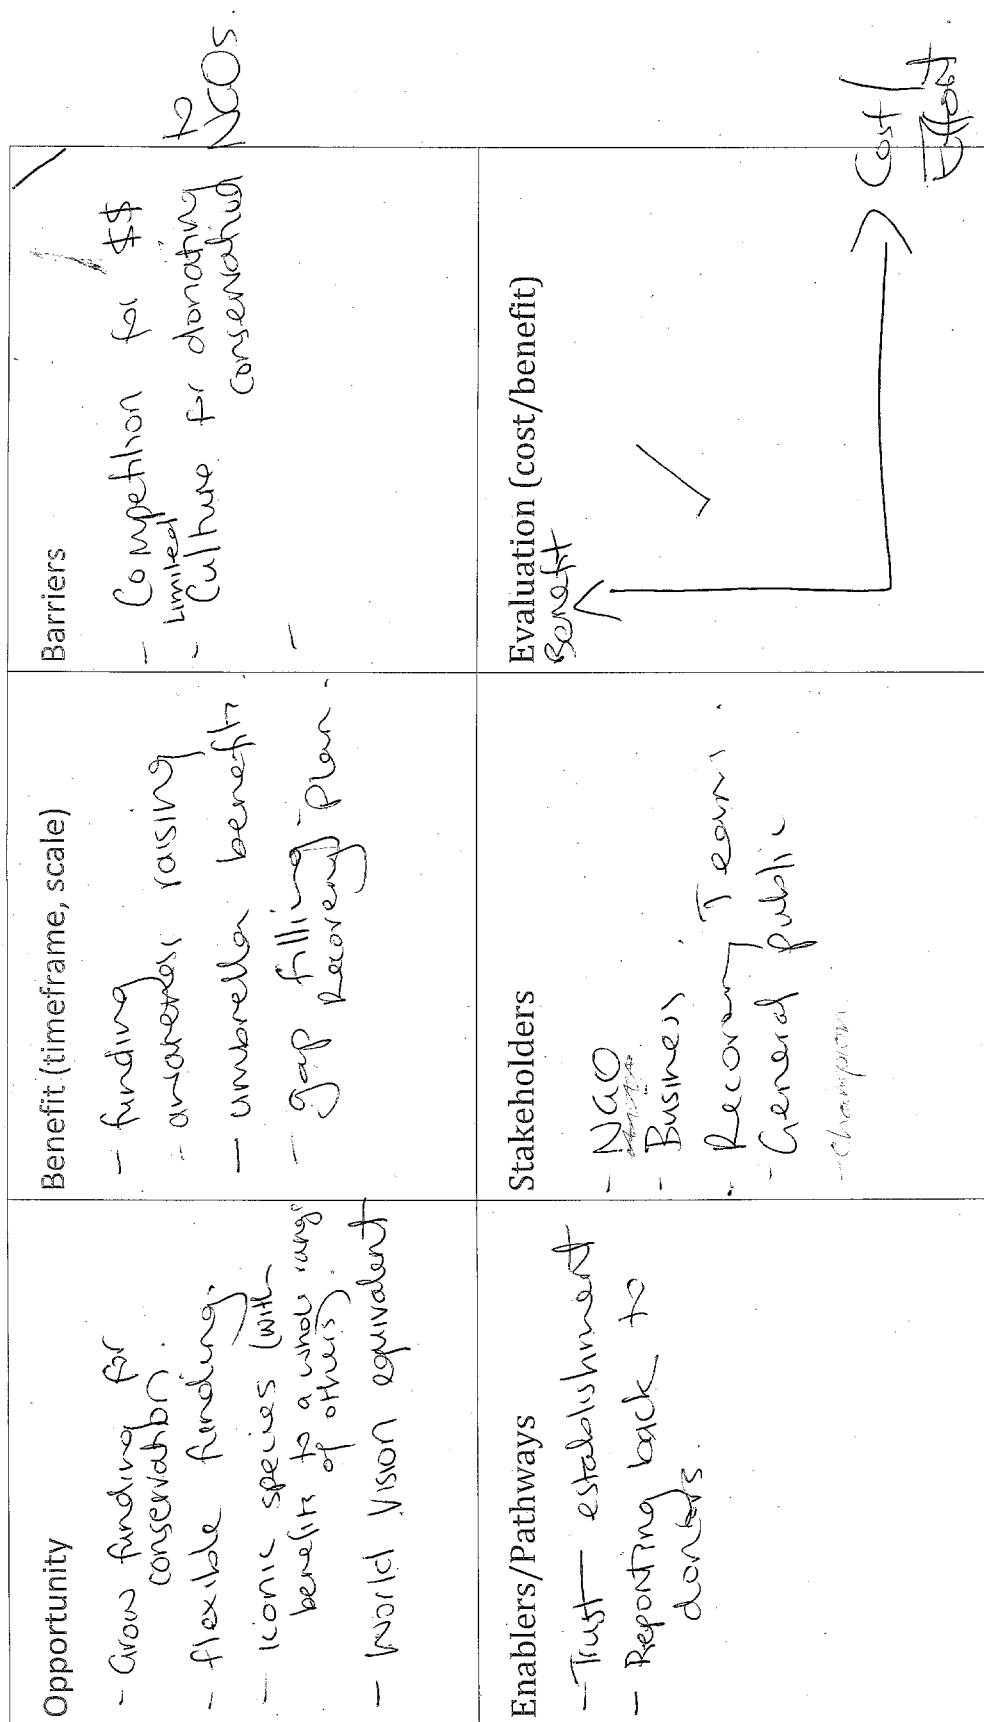 Opportunity
- Grow funding for
conservation.
- flexible funding.
- iconic species (with
benefits to a whole range
of others).
- World Vision equivalent
Benefit (timeframe, scale)
- funding
- awareness raising
- umbrella benefits
- gap filling - Recovery Plan.
Barriers
- Competition for $$
- Limited Culture for donating to
conservation NGOs.
-
Enablers/Pathways
- Trust - establishment
- Reporting back to
donors.
Stakeholders
- NGO
- Business.
- Recovery Teams.
- General public
- Champion
Evaluation (cost/benefit)
Benefit
Cost/
Effort